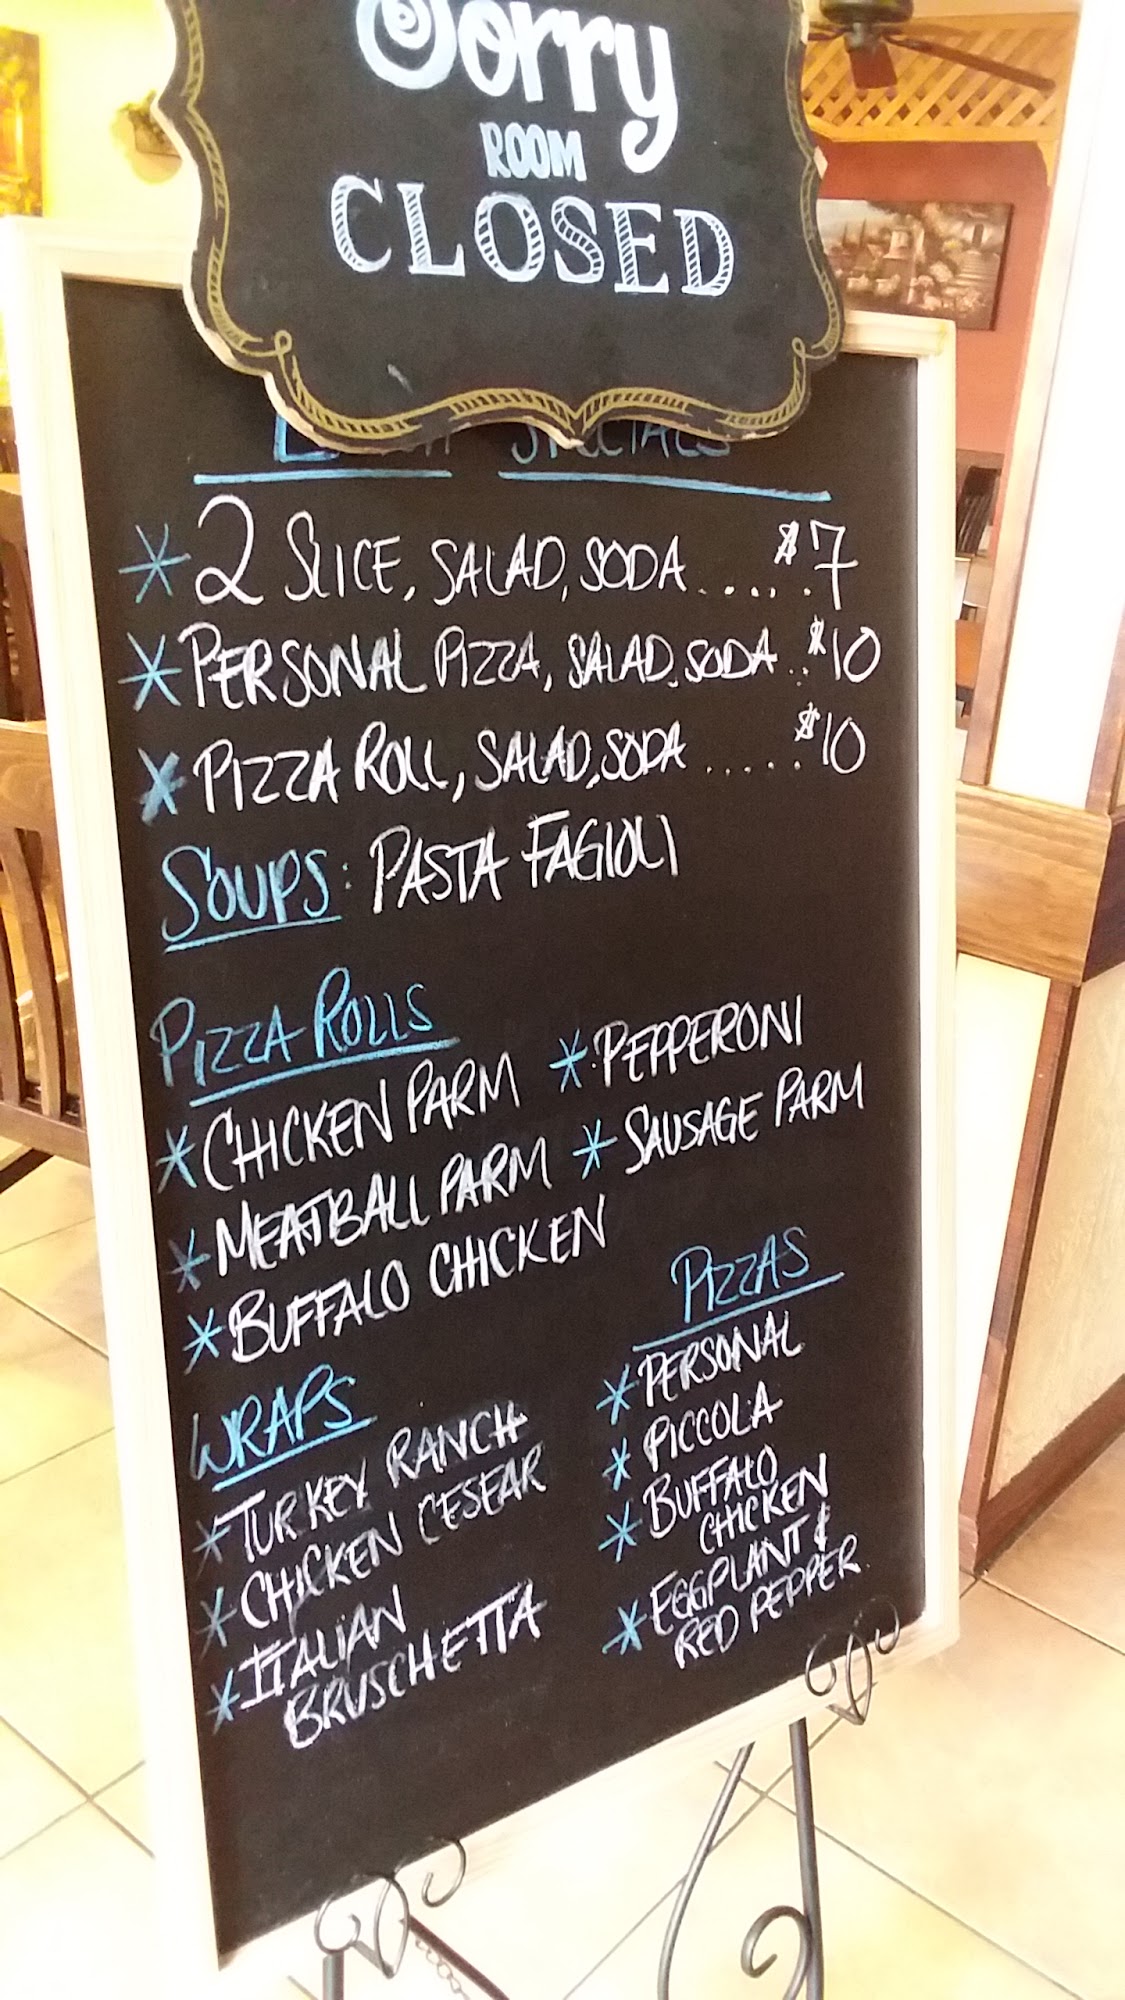 Sorry
ROOM
CLOSED
SPECIALS
* 2 SLICE, SALAD, SODA ...... $7
* PERSONAL PIZZA, SALAD, SODA .. $10
* PIZZA ROLL, SALAD, SODA ...... $10
SOUPS: PASTA FAGIOLI
PIZZA ROLLS
* CHICKEN PARM * PEPPERONI
* MEATBALL PARM * SAUSAGE PARM
* BUFFALO CHICKEN
WRAPS
* TURKEY RANCH
* CHICKEN CESEAR
* ITALIAN
BRUSCHETTA
PIZZAS
* PERSONAL
* PICCOLA
* BUFFALO
CHICKEN
* EGGPLANT &
RED PEPPER